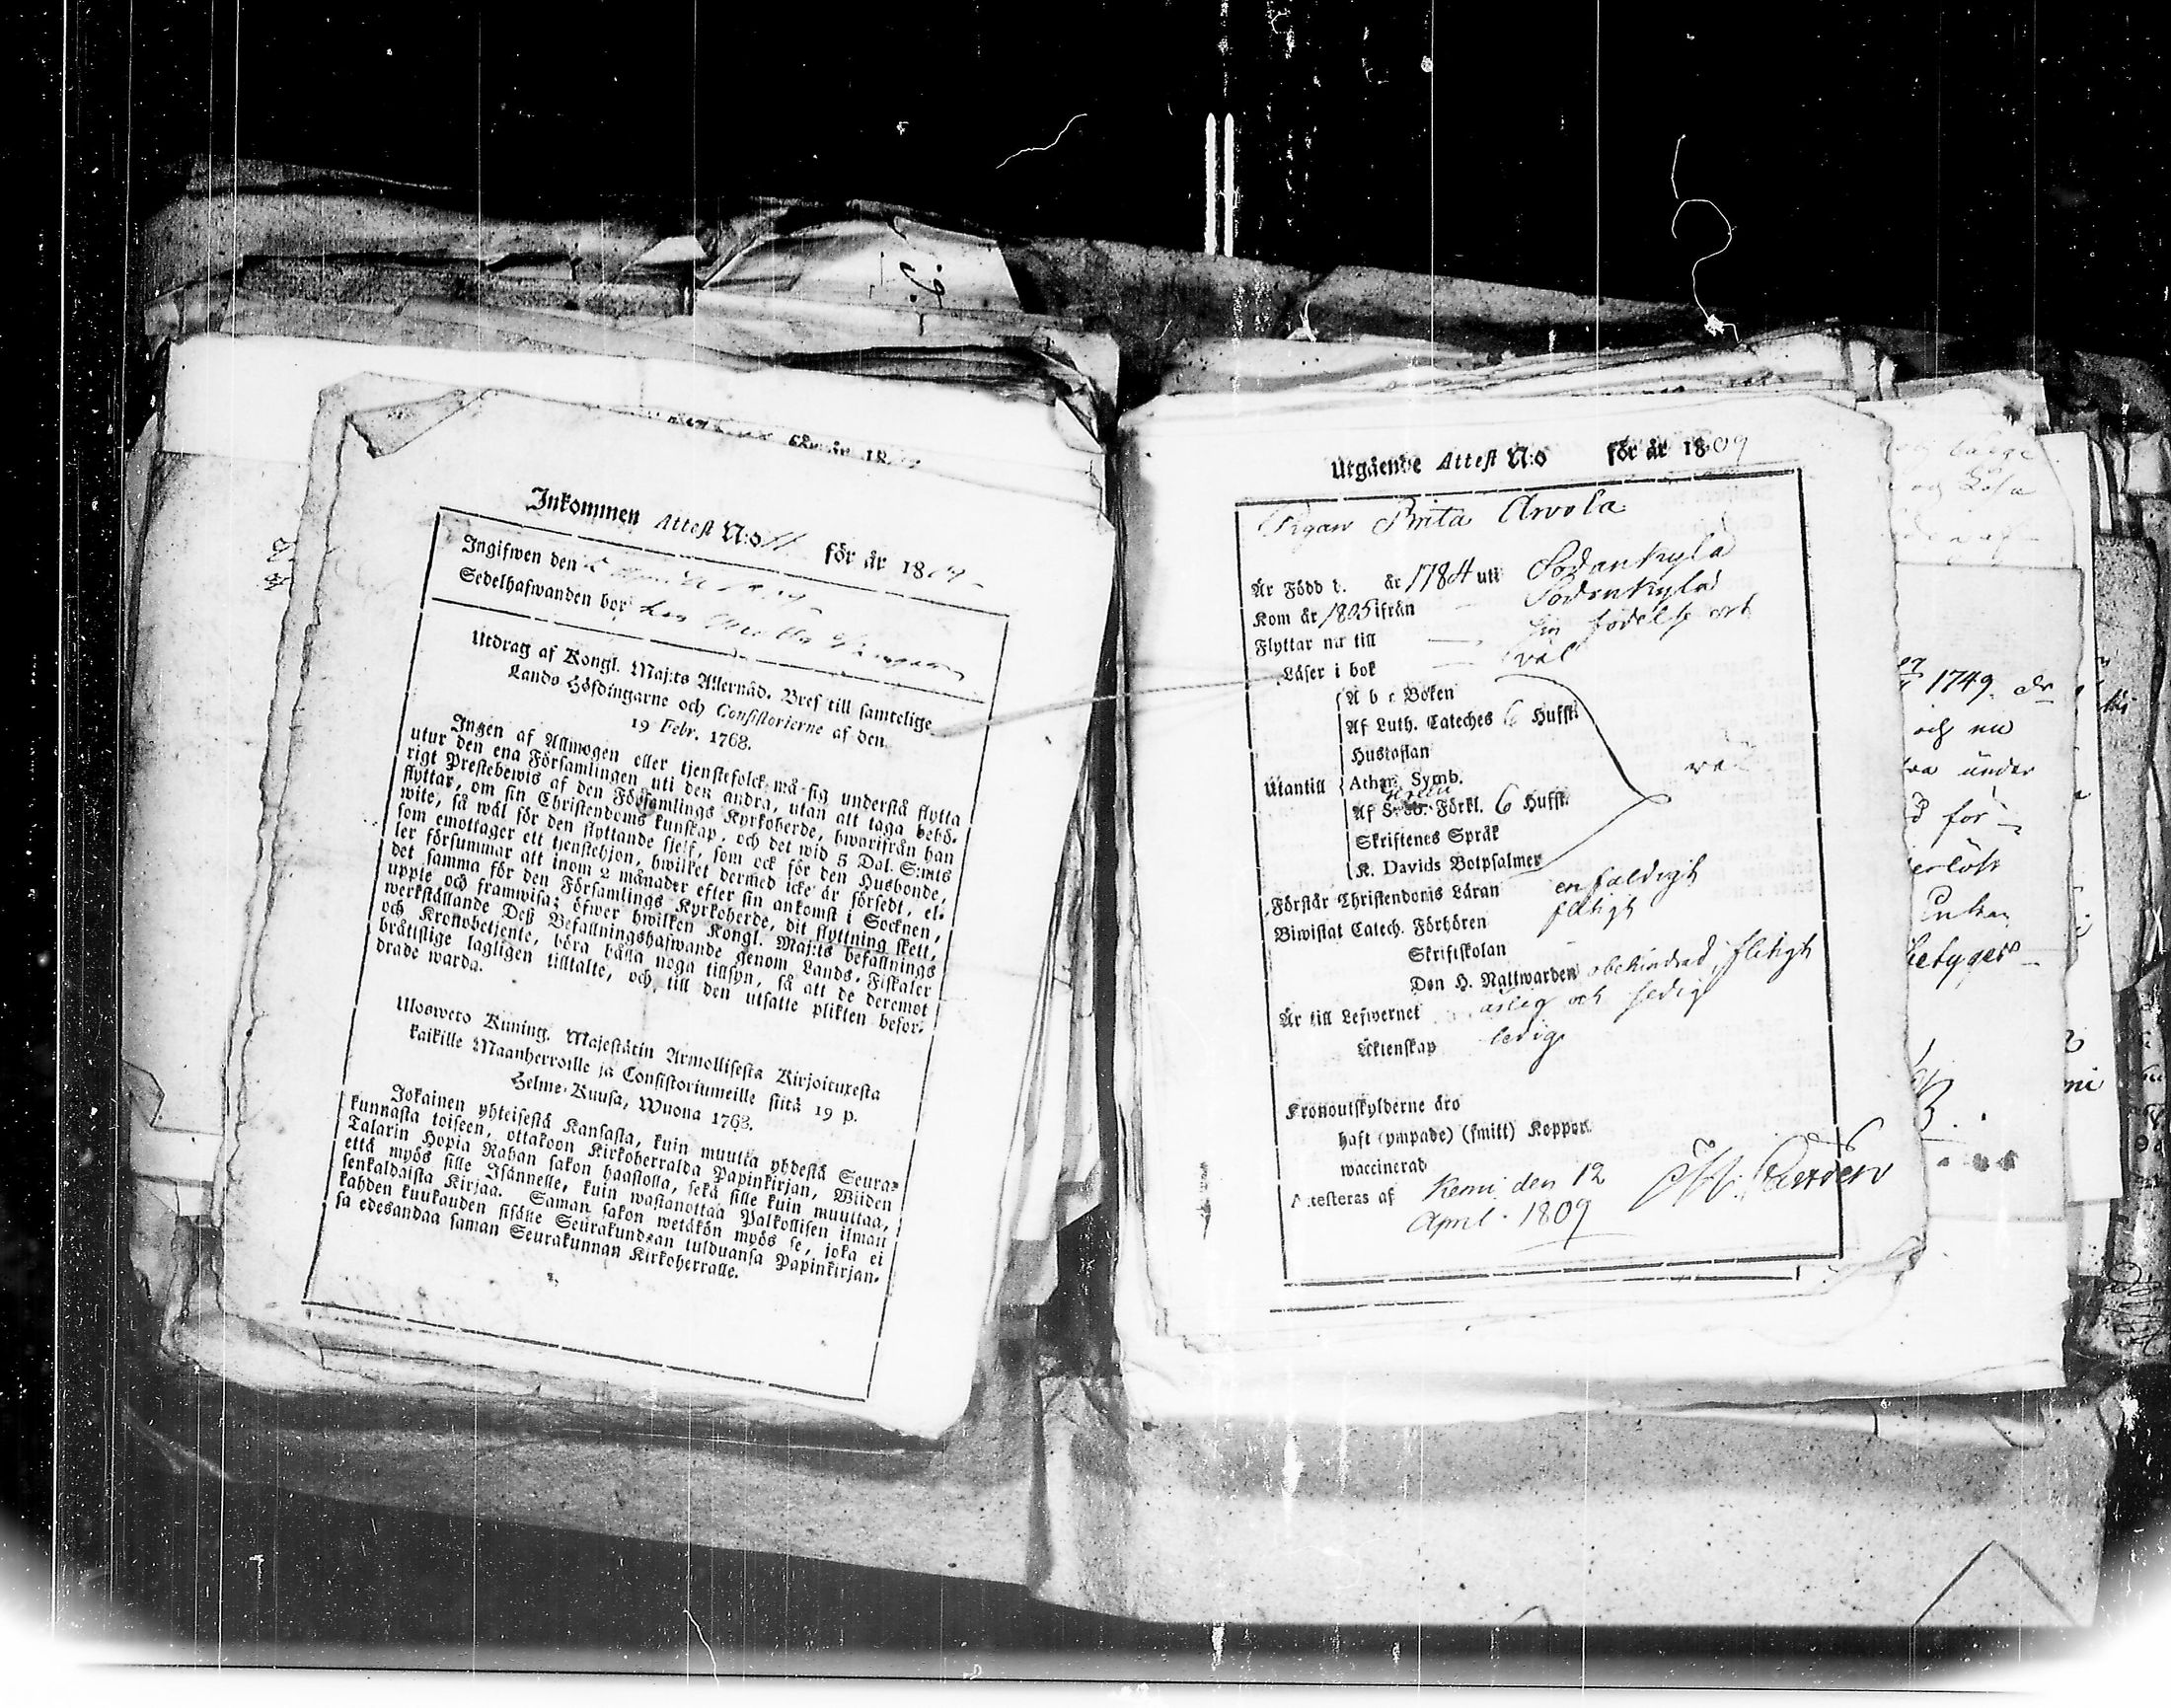 för år 18
Inkommen Attest N:o 11 för år 1809
Ingifwen den
Sedelhafwanden bor hos
Utdrag af Kongl. Maj:ts Allernåd. Bref till samtelige
Lands Höfdingarne och Consistorierne af den
19 Febr. 1768.
Ingen af Allmogen eller tjenstefolck må sig understå flytta
utur den ena Församlingen uti den andra, utan att taga behö-
rigt Prestebewis af den Församlings Kyrkoherde, hwarifrån han
flyttar, om sin Christendoms kunskap, och det wid 5 Dal. S:mts
wite, så wäl för den flyttande sjelf, som ock för den Husbonde,
som emottager ett tjenstehjon, hwilket dermed icke är försedt, el-
ler försummar att inom 2 månader efter sin ankomst i Socknen,
det samma för den Församlings Kyrkoherde, dit flyttning skett,
uppte och framwisa; öfwer hwilken Kongl. Maj:ts befallnings
werkställande Deß Befallningshafwande genom Lands-Fiskaler
och Kronobetjente, böra hålla noga tillsyn, så att de deremot
bråttslige lagligen tilltalte, och till den utsatte plikten befor-
drade warda.
Uloswero Kuning. Majestätin Armollisesta Kirjoituxesta
kaikille Maanherroille ja Consistoriumeille siitä 19 p.
Helme-Kuusa, Wuona 1768.
Jokainen yhteisestä Kansasta, kuin muutta yhdestä Seura-
kunnasta toiseen, ottakoon Kirkoherralda Papinkirjan, Wiiden
Talarin Hopia Rahan sakon haastolla, sekä sille kuin muuttaa,
että myös sille Isännelle, kuin wastanottaa Palkollisen ilman
senkaldaista Kirjaa. Saman sakon wetäkön myös se, joka ei
kahden kuukauden sisälle Seurakundaan tulduansa Papinkirjan-
sa edesandaa saman Seurakunnan Kirkoherralle.
Utgående Attest N:o för år 1809
Pigan Brita Arvola
Är Född d. år 1784 uti Sodankylä
Kom år 1805 ifrån Sodankylä
Flyttar nu till sin födelse ort
Läser i bok väl
A b c Boken
Af Luth. Cateches 6 Hufst.
Hustaflan
Utantill Athan. Symb. väl
Af Förkl. 6 Hufst.
Skriftenes Språk
K. Davids Botpsalmer
Förstår Christendoms Läran enfaldigt
Biwistat Catech. Förhören flitigt
Skriftskolan
Den H. Nattwarden obehindrad, flitigt
Är till Lefwernet ärlig och sedig
Äktenskap ledig
Kronoutskylderne äro
haft (ympade) (smitt) Koppor
waccinerad
Attesteras af Kemi den 12
April 1809
1749
och nu
under
för
betyges